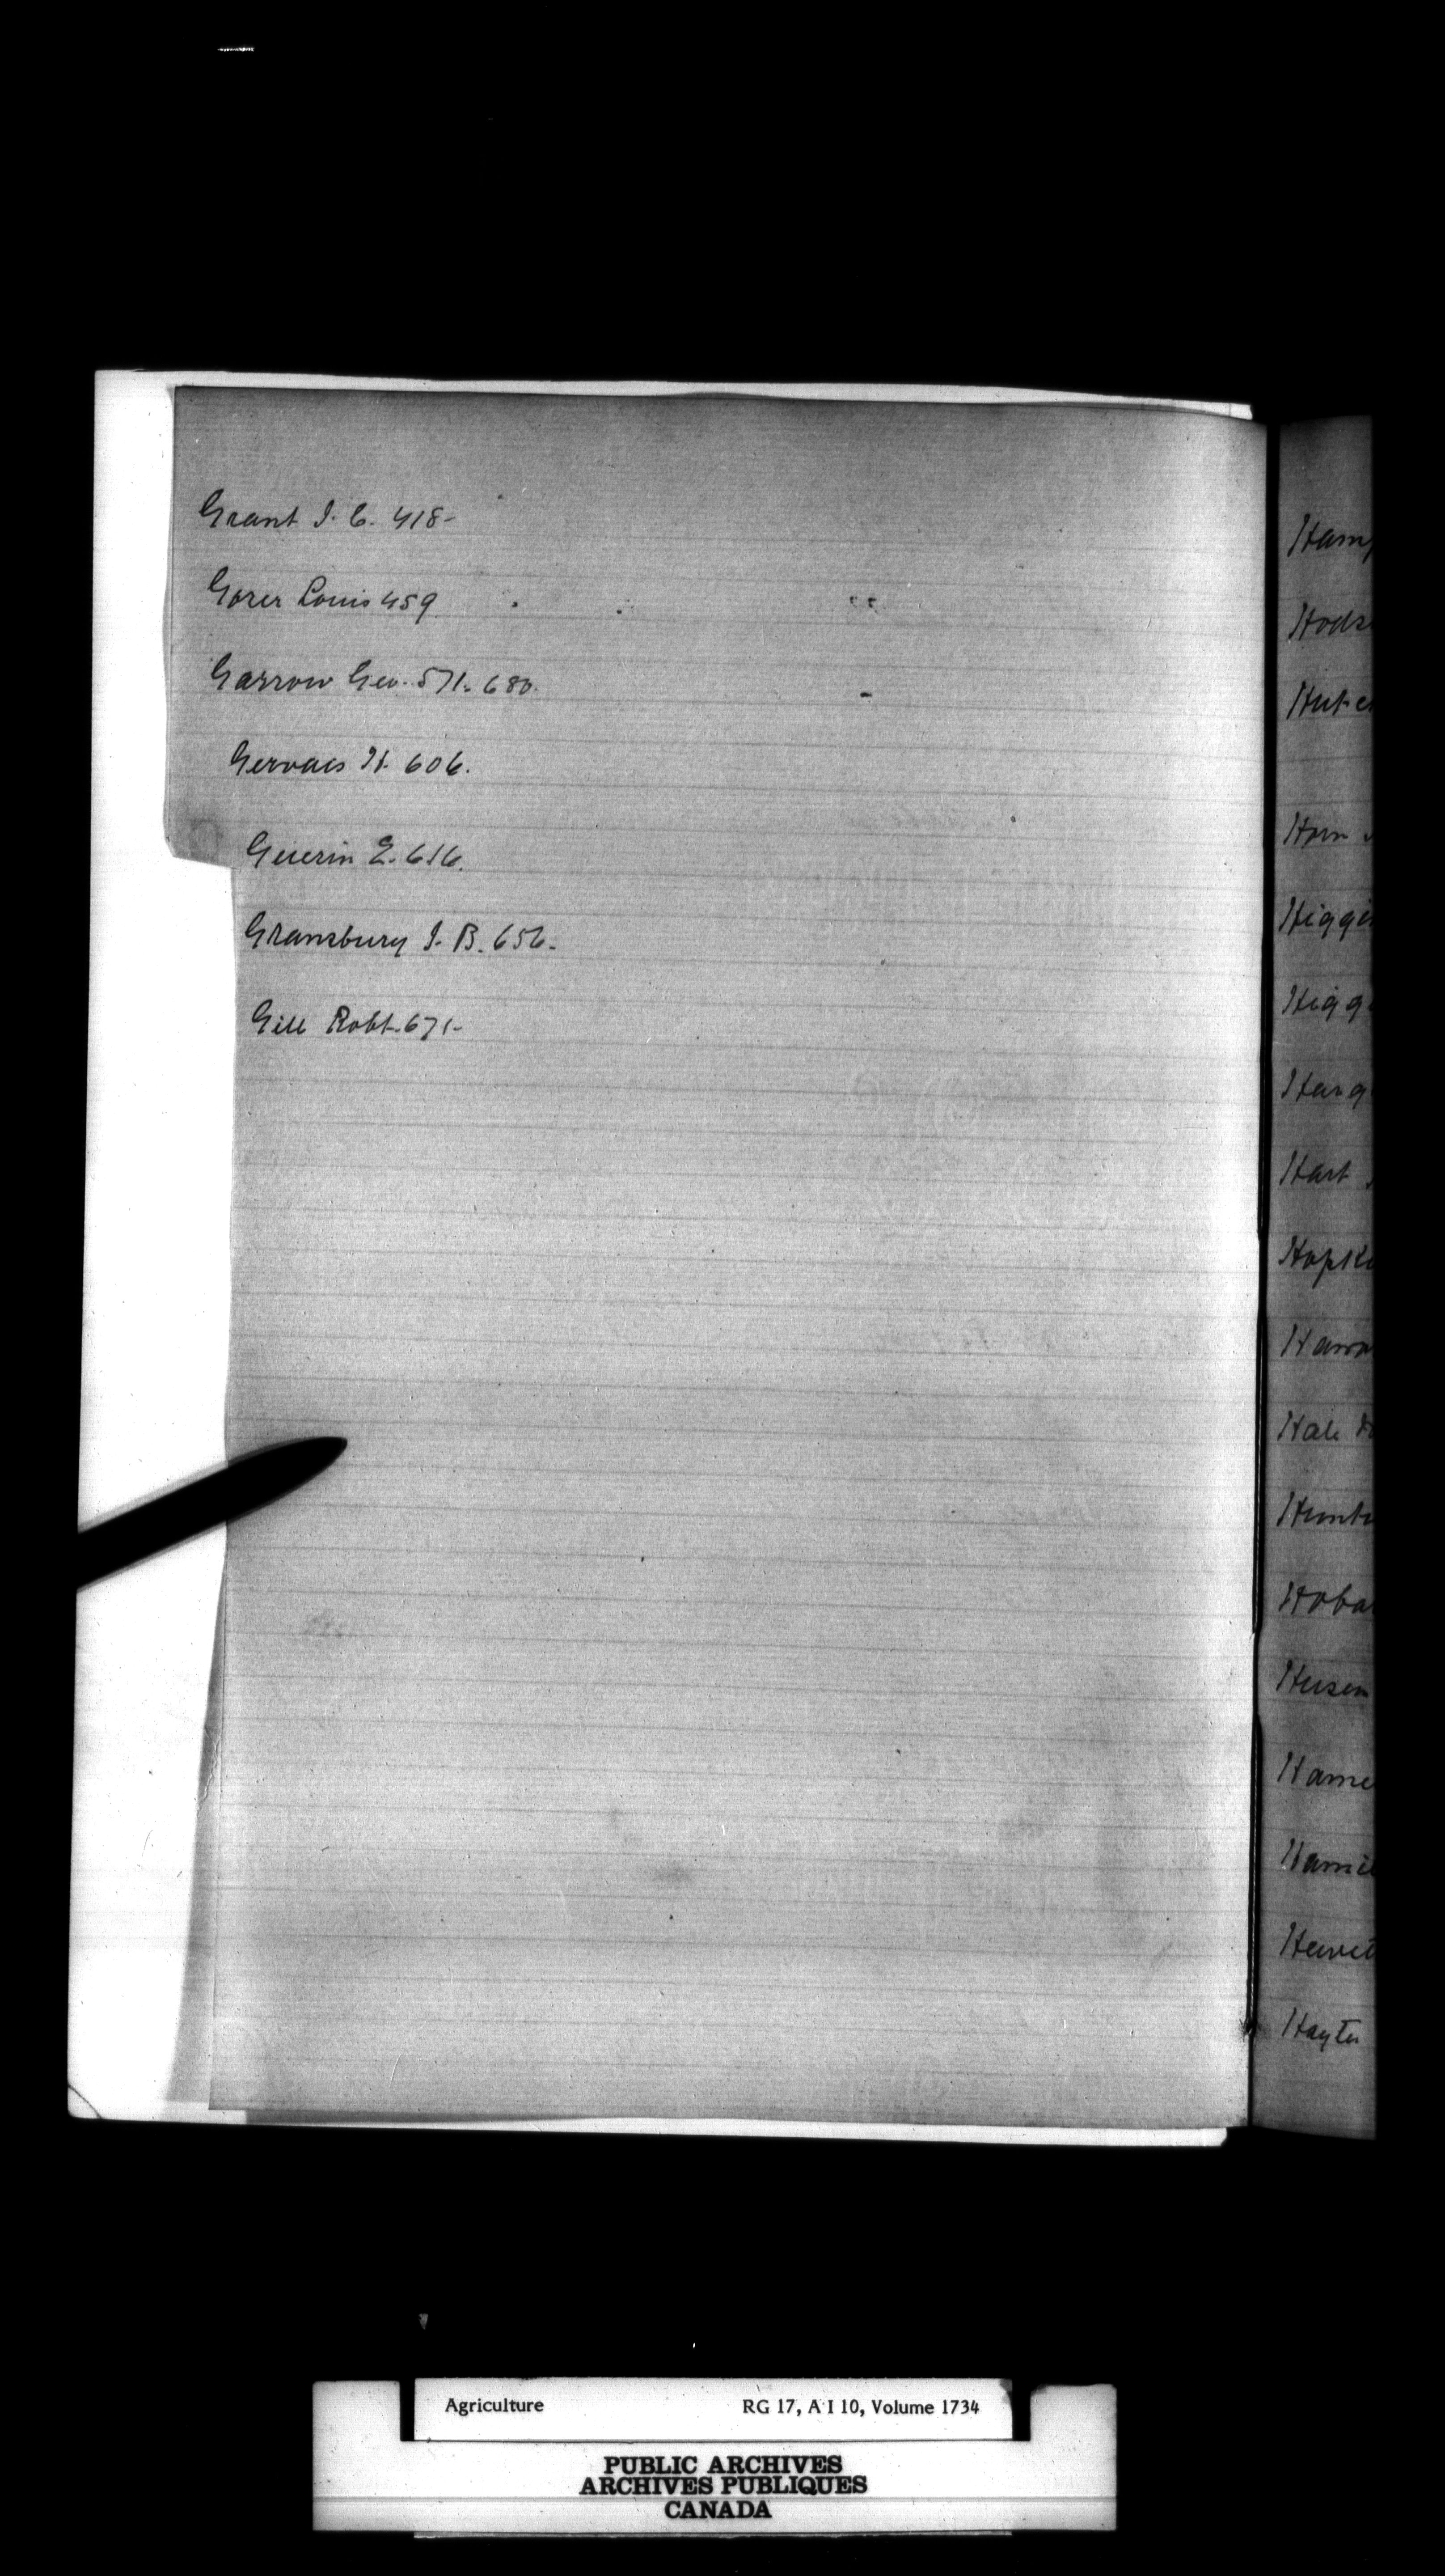 Grant J. C. 418-
Gorer Louis 459
Garrow Geo. 571. 680.
Gervais H. 606.
Guerin E. 616.
Gransbury J. B. 656-
Gill Robt. 671-
Ham
Hods
Hutch
Horn
Higgi
Higg
Harg
Hart
Hopki
Hann
Hale
Hunte
Hobar
Huson
Hame
Hamil
Hewit
Hayter
Agriculture RG 17, A I 10, Volume 1734
PUBLIC ARCHIVES
ARCHIVES PUBLIQUES
CANADA